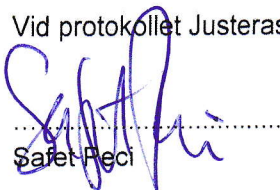 Vid protokollet Justeras
Safet Peci